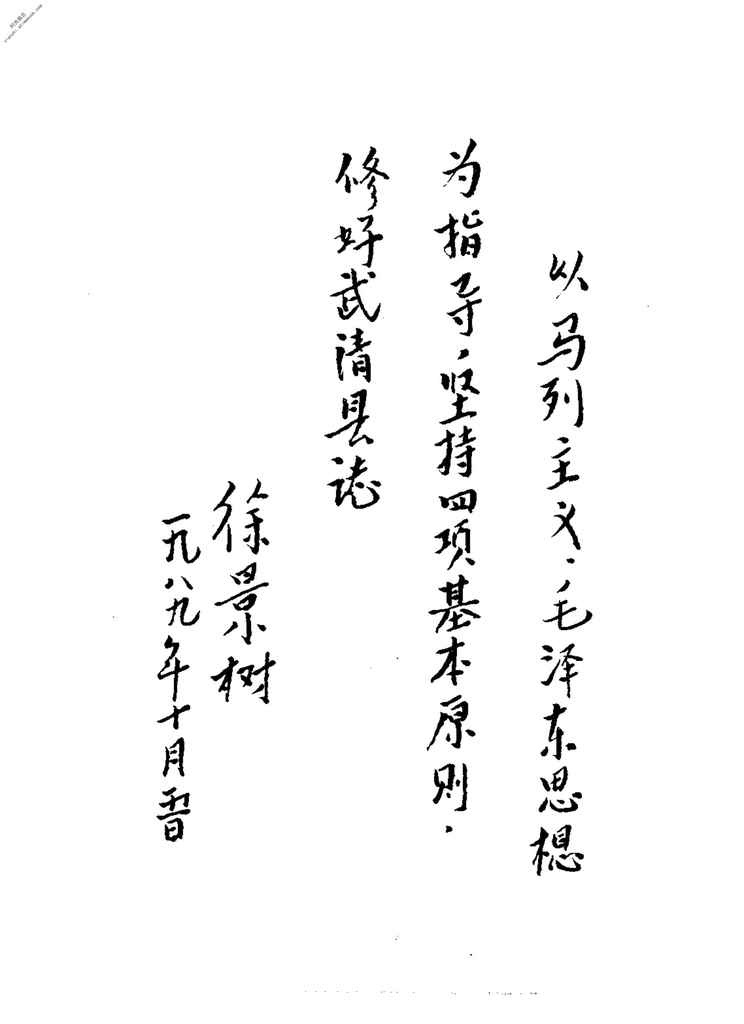 以马列主义、毛泽东思想
为指导,坚持四项基本原则,
修好武清县誌
徐景树
一九八九年十月